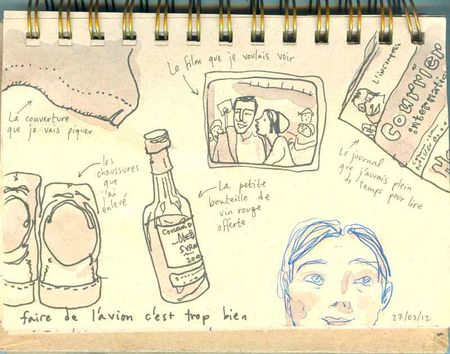 Le film que je voulais voir
La couverture
que je vais piquer
L'incompris
COURRIER
internation
Le journal
que j'aurais plein
de temps pour lire
les
chaussures
que
j'ai
enlevé
La petite
bouteille de
vin rouge
offerte
SYRAH
faire de l'avion c'est trop bien
27/03/12